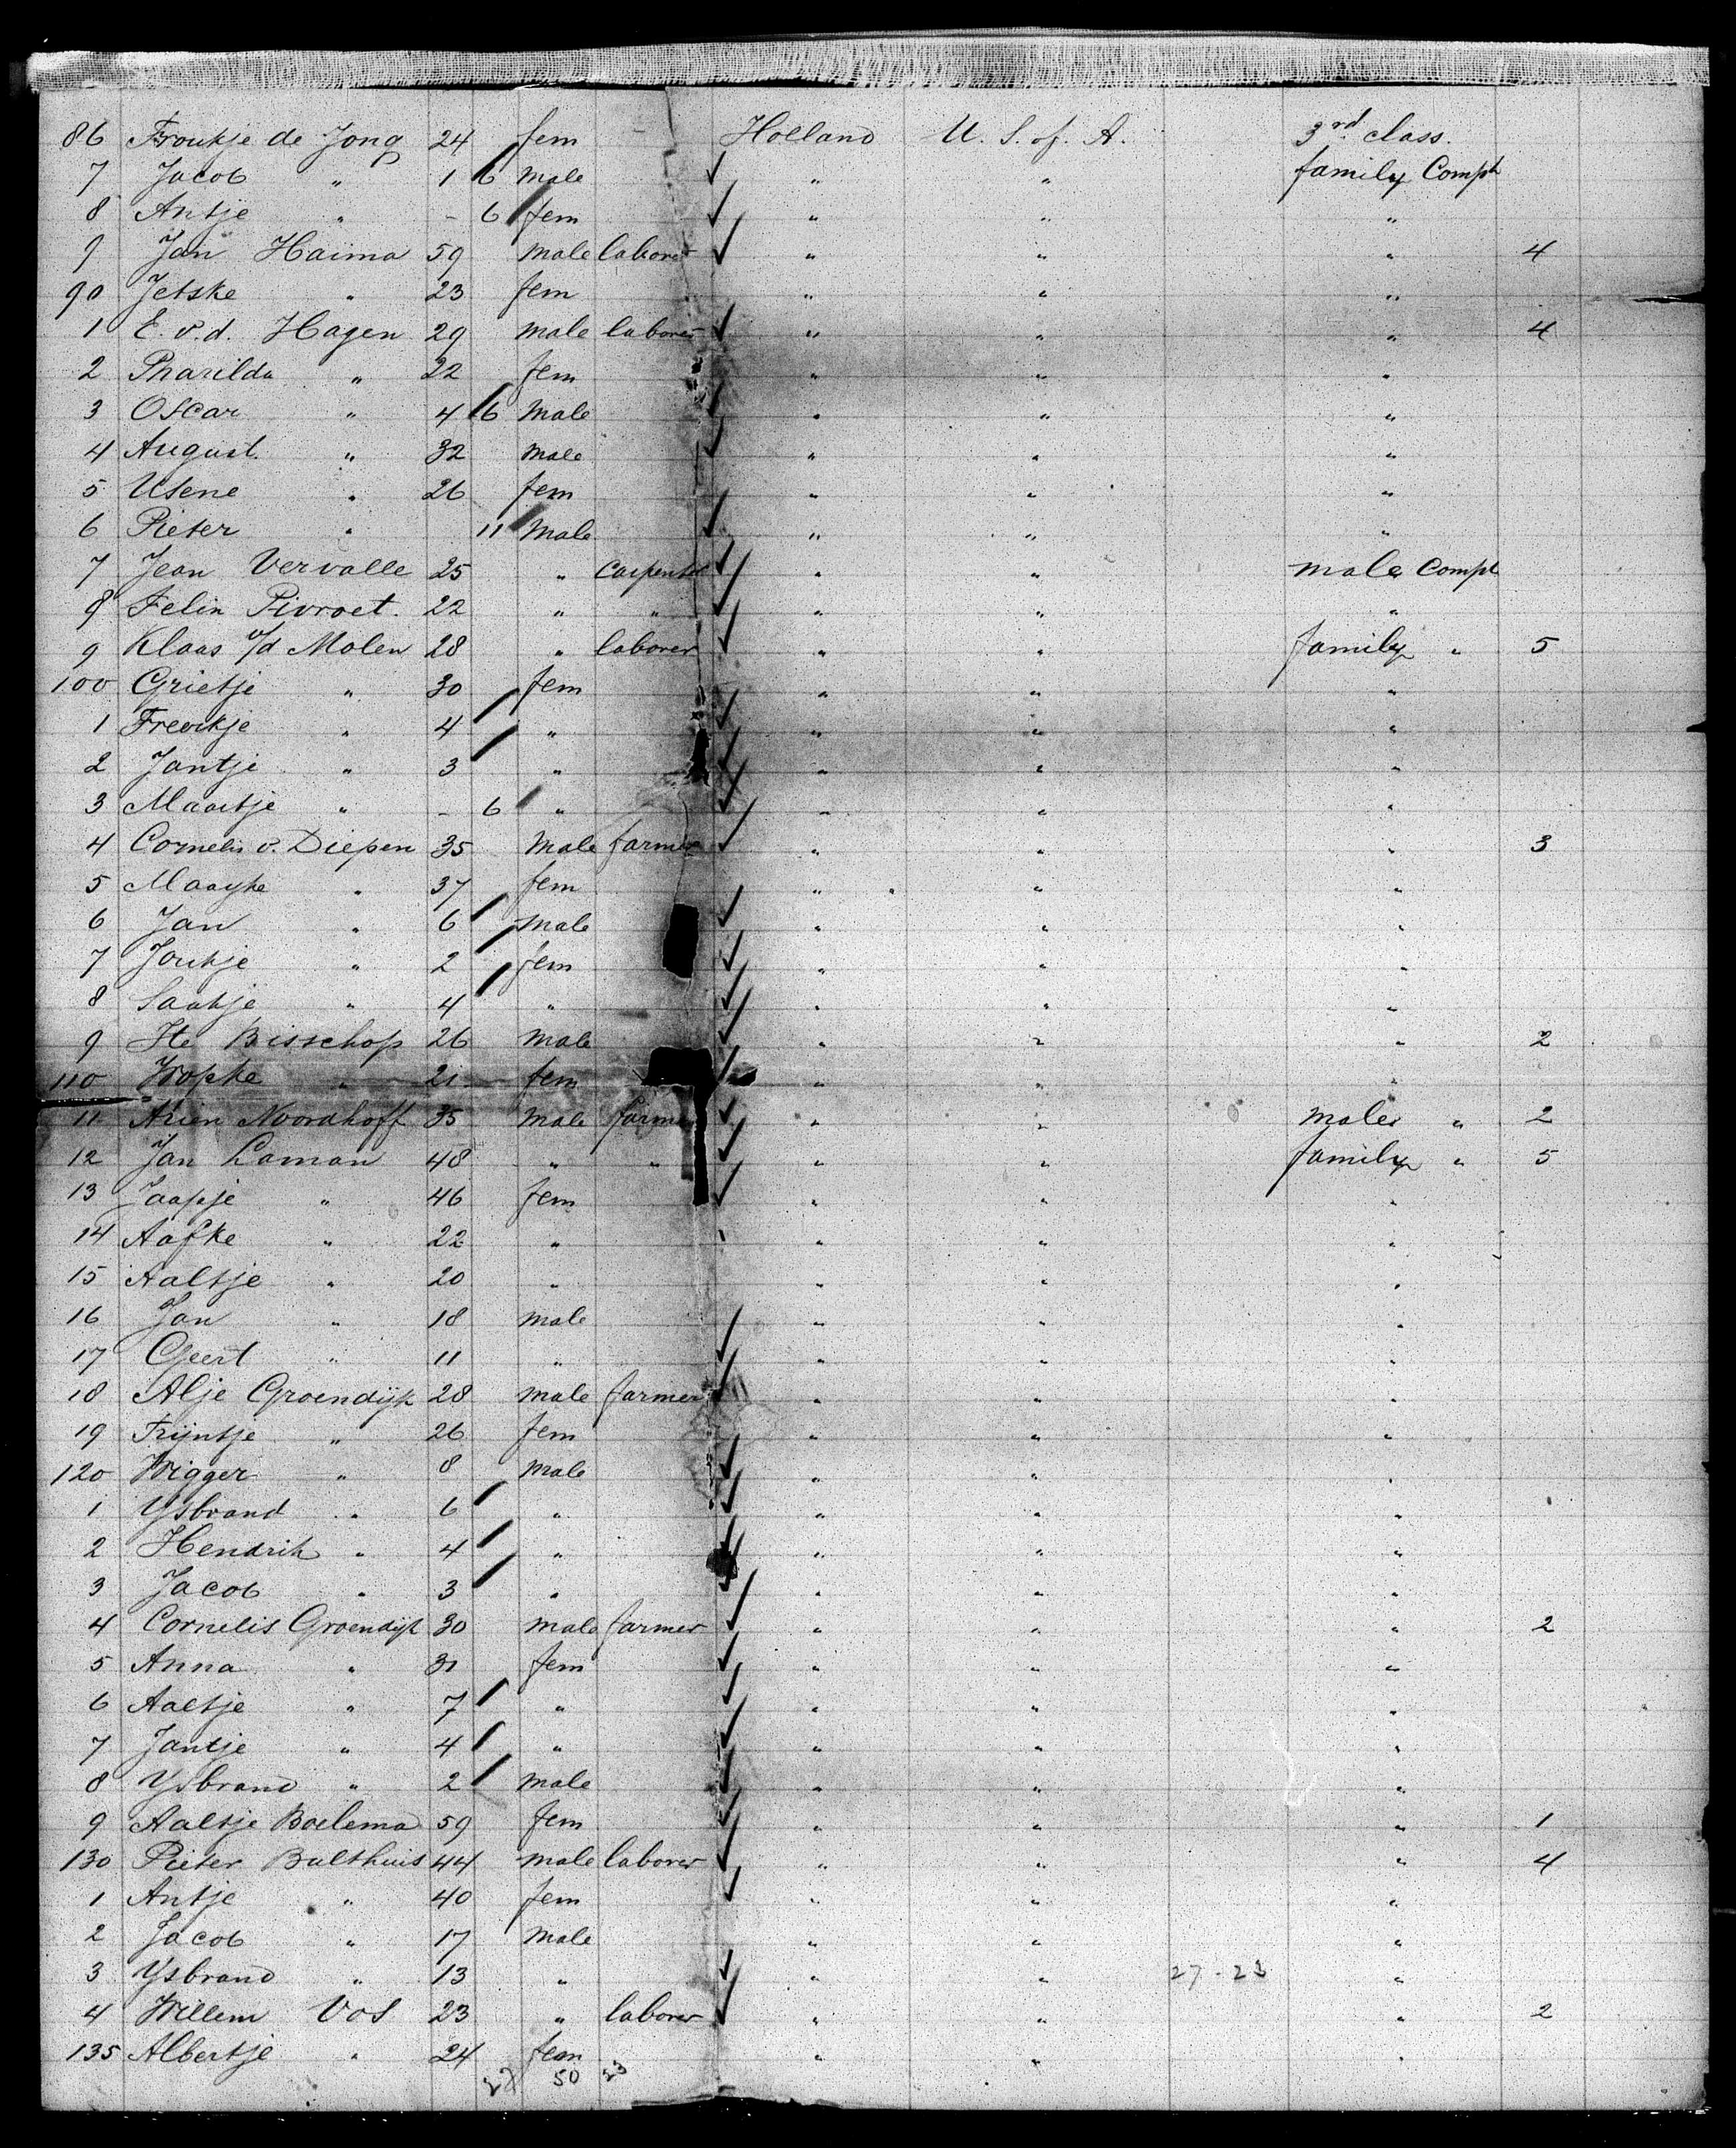 86 Froukje de Jong 24 fem Holland U. S. of. A. 3rd class.
7 Jacob " 1 6 male " " family Compt
8 Antje " - 6 fem " " "
9 Jan Haima 59 male laborer " " " 4
90 Jetske " 23 fem " " "
1 E v.d. Hagen 29 male laborer " " " 4
2 Pharilda " 22 fem " " "
3 Oscar " 4 6 male " " "
4 August. " 32 male " " "
5 Usene " 26 fem " " "
6 Pieter " 11 male " " "
7 Jean Vervalle 25 " carpenter " " male Compt
8 Felin Pivroet. 22 " " " " "
9 Klaas v/d Molen 28 " laborer " " family " 5
100 Grietje " 30 fem " " "
1 Froukje " 4 " " " "
2 Jantje " 3 " " " "
3 Maartje " - 6 " " " "
4 Cornelis v. Diepen 35 male farmer " " " 3
5 Maayke " 37 fem " " "
6 Jan " 6 male " " "
7 Joukje " 2 fem " " "
8 Saakje " 4 " " " "
9 Ite Bisschop 26 male " " " 2
110 Wopke " 21 fem " " "
11 Arien Noordhoff 35 male farmer " " males " 2
12 Jan Laman 48 " " " " family " 5
13 Jaapje " 46 fem " " "
14 Aafke " 22 " " " "
15 Aaltje " 20 " " " "
16 Jan " 18 male " " "
17 Geert " 11 " " " "
18 Alje Groendijk 28 male farmer " " "
19 Trijntje " 26 fem " " "
120 Wigger " 8 male " " "
1 Ysbrand " 6 " " " "
2 Hendrik " 4 " " " "
3 Jacob " 3 " " " "
4 Cornelis Groendijk 30 male farmer " " " 2
5 Anna " 31 fem " " "
6 Aaltje " 7 " " " "
7 Jantje " 4 " " " "
8 Ysbrand " 2 male " " "
9 Aaltje Boelema 59 fem " " " 1
130 Pieter Bulthuis 44 male laborer " " " 4
1 Antje " 40 fem " " "
2 Jacob " 17 male " " "
3 Ysbrand " 13 " " " 27-23 "
4 Willem Vos 23 " laborer " " " 2
135 Albertje " 24 fem " " "
27 50 23